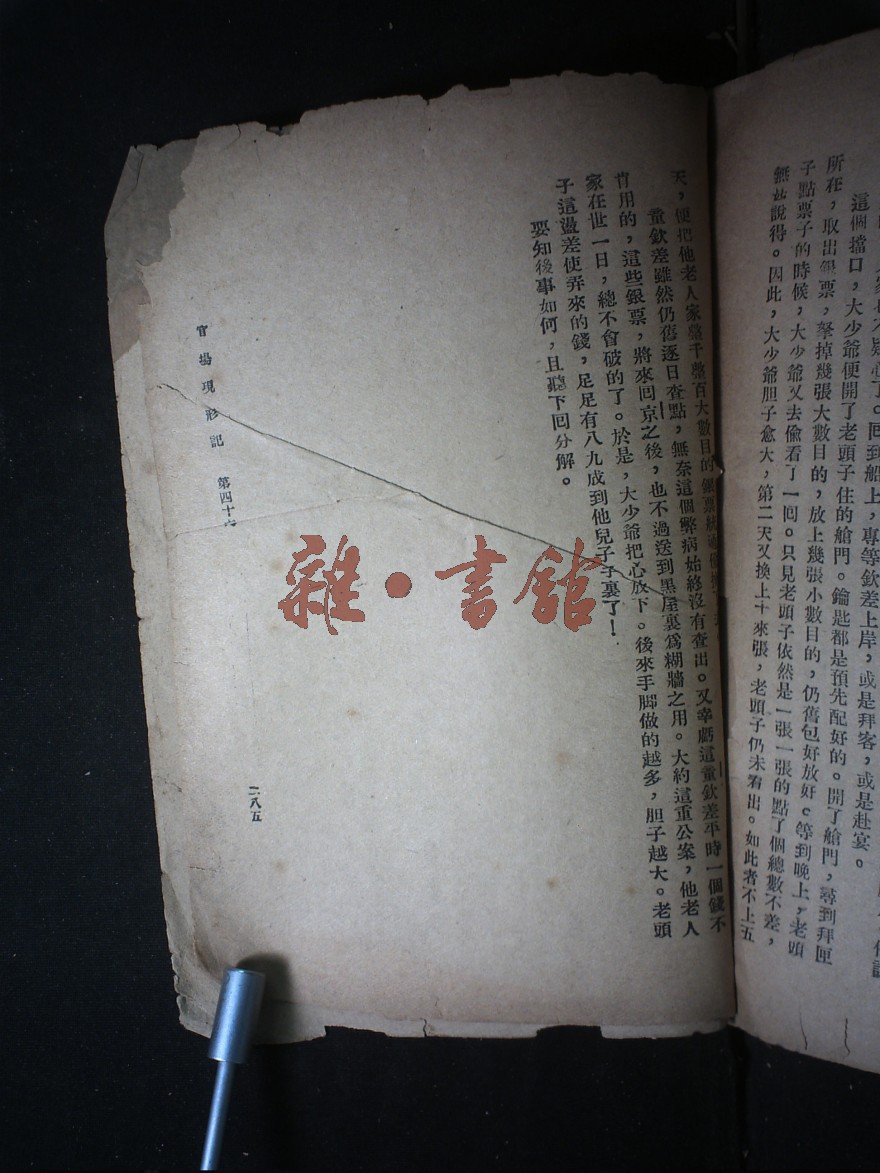 這個擋口，大少爺便開了老頭子住的艙門。鑰匙都是預先配好的。開了艙門，尋到拜匣
所在，取出銀票，拏掉幾張大數目的，放上幾張小數目的，仍舊包好放好。等到晚上，老頭
子點票子的時候，大少爺又去偷看了一回。只見老頭子依然是一張一張的點了個總數不差，
無甚說得。因此，大少爺胆子愈大，第二天又換上十來張，老頭子仍未看出。如此者不上五
天，便把他老人家整千整百大數目的銀票統通
童欽差雖然仍舊逐日查點，無奈這個弊病始終沒有查出。又幸虧這童欽差平時一個錢不
肯用的，這些銀票，將來回京之後，也不過送到黑屋裏爲糊牆之用。大約這重公案，他老人
家在世一日，總不會破的了。於是，大少爺把心放下。後來手脚做的越多，胆子越大。老頭
子這盪差使弄來的錢，足足有八九成到他兒子手裏了！
要知後事如何，且聽下回分解。
官場現形記 第四十六
二八五
雜·書館